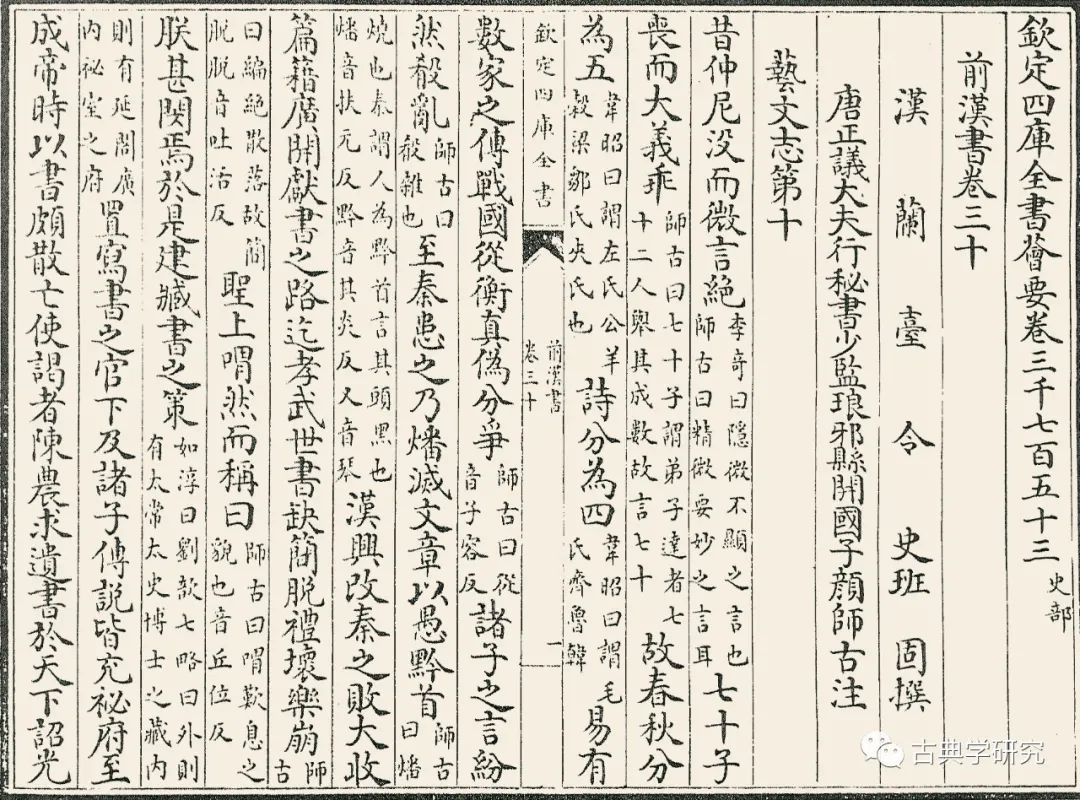 欽定四庫全書薈要卷三千七百五十三 史部
前漢書卷三十
漢蘭臺令史班固撰
唐正議大夫行秘書少監琅邪縣開國子顏師古注
藝文志第十
昔仲尼没而微言絶李奇曰隱微不顯之言也師古曰精微要妙之言耳七十子
喪而大義乖師古曰七十子謂弟子達者七十二人舉其成數故言七十故春秋分
為五韋昭曰謂左氏公羊穀梁鄒氏夾氏也詩分為四韋昭曰謂毛氏齊魯韓易有
欽定四庫全書
前漢書
卷三十
一
數家之傳戰國從衡真偽分爭師古曰從音子容反諸子之言紛
然殽亂師古曰殽雜也至秦患之乃燔滅文章以愚黔首師古曰燔
燒也秦謂人為黔首言其頭黑也燔音扶元反黔音其炎反又音琴漢興改秦之敗大收
篇籍廣開獻書之路迄孝武世書缺簡脱禮壞樂崩師古
曰編絶散落故簡脱脱音吐活反聖上喟然而稱曰師古曰喟歎息之貌也音丘位反
朕甚閔焉於是建藏書之策如淳曰劉歆七略曰外則有太常太史博士之藏内
則有延閣廣内祕室之府置寫書之官下及諸子傳説皆充祕府至
成帝時以書頗散亡使謁者陳農求遺書於天下詔光
古典学研究